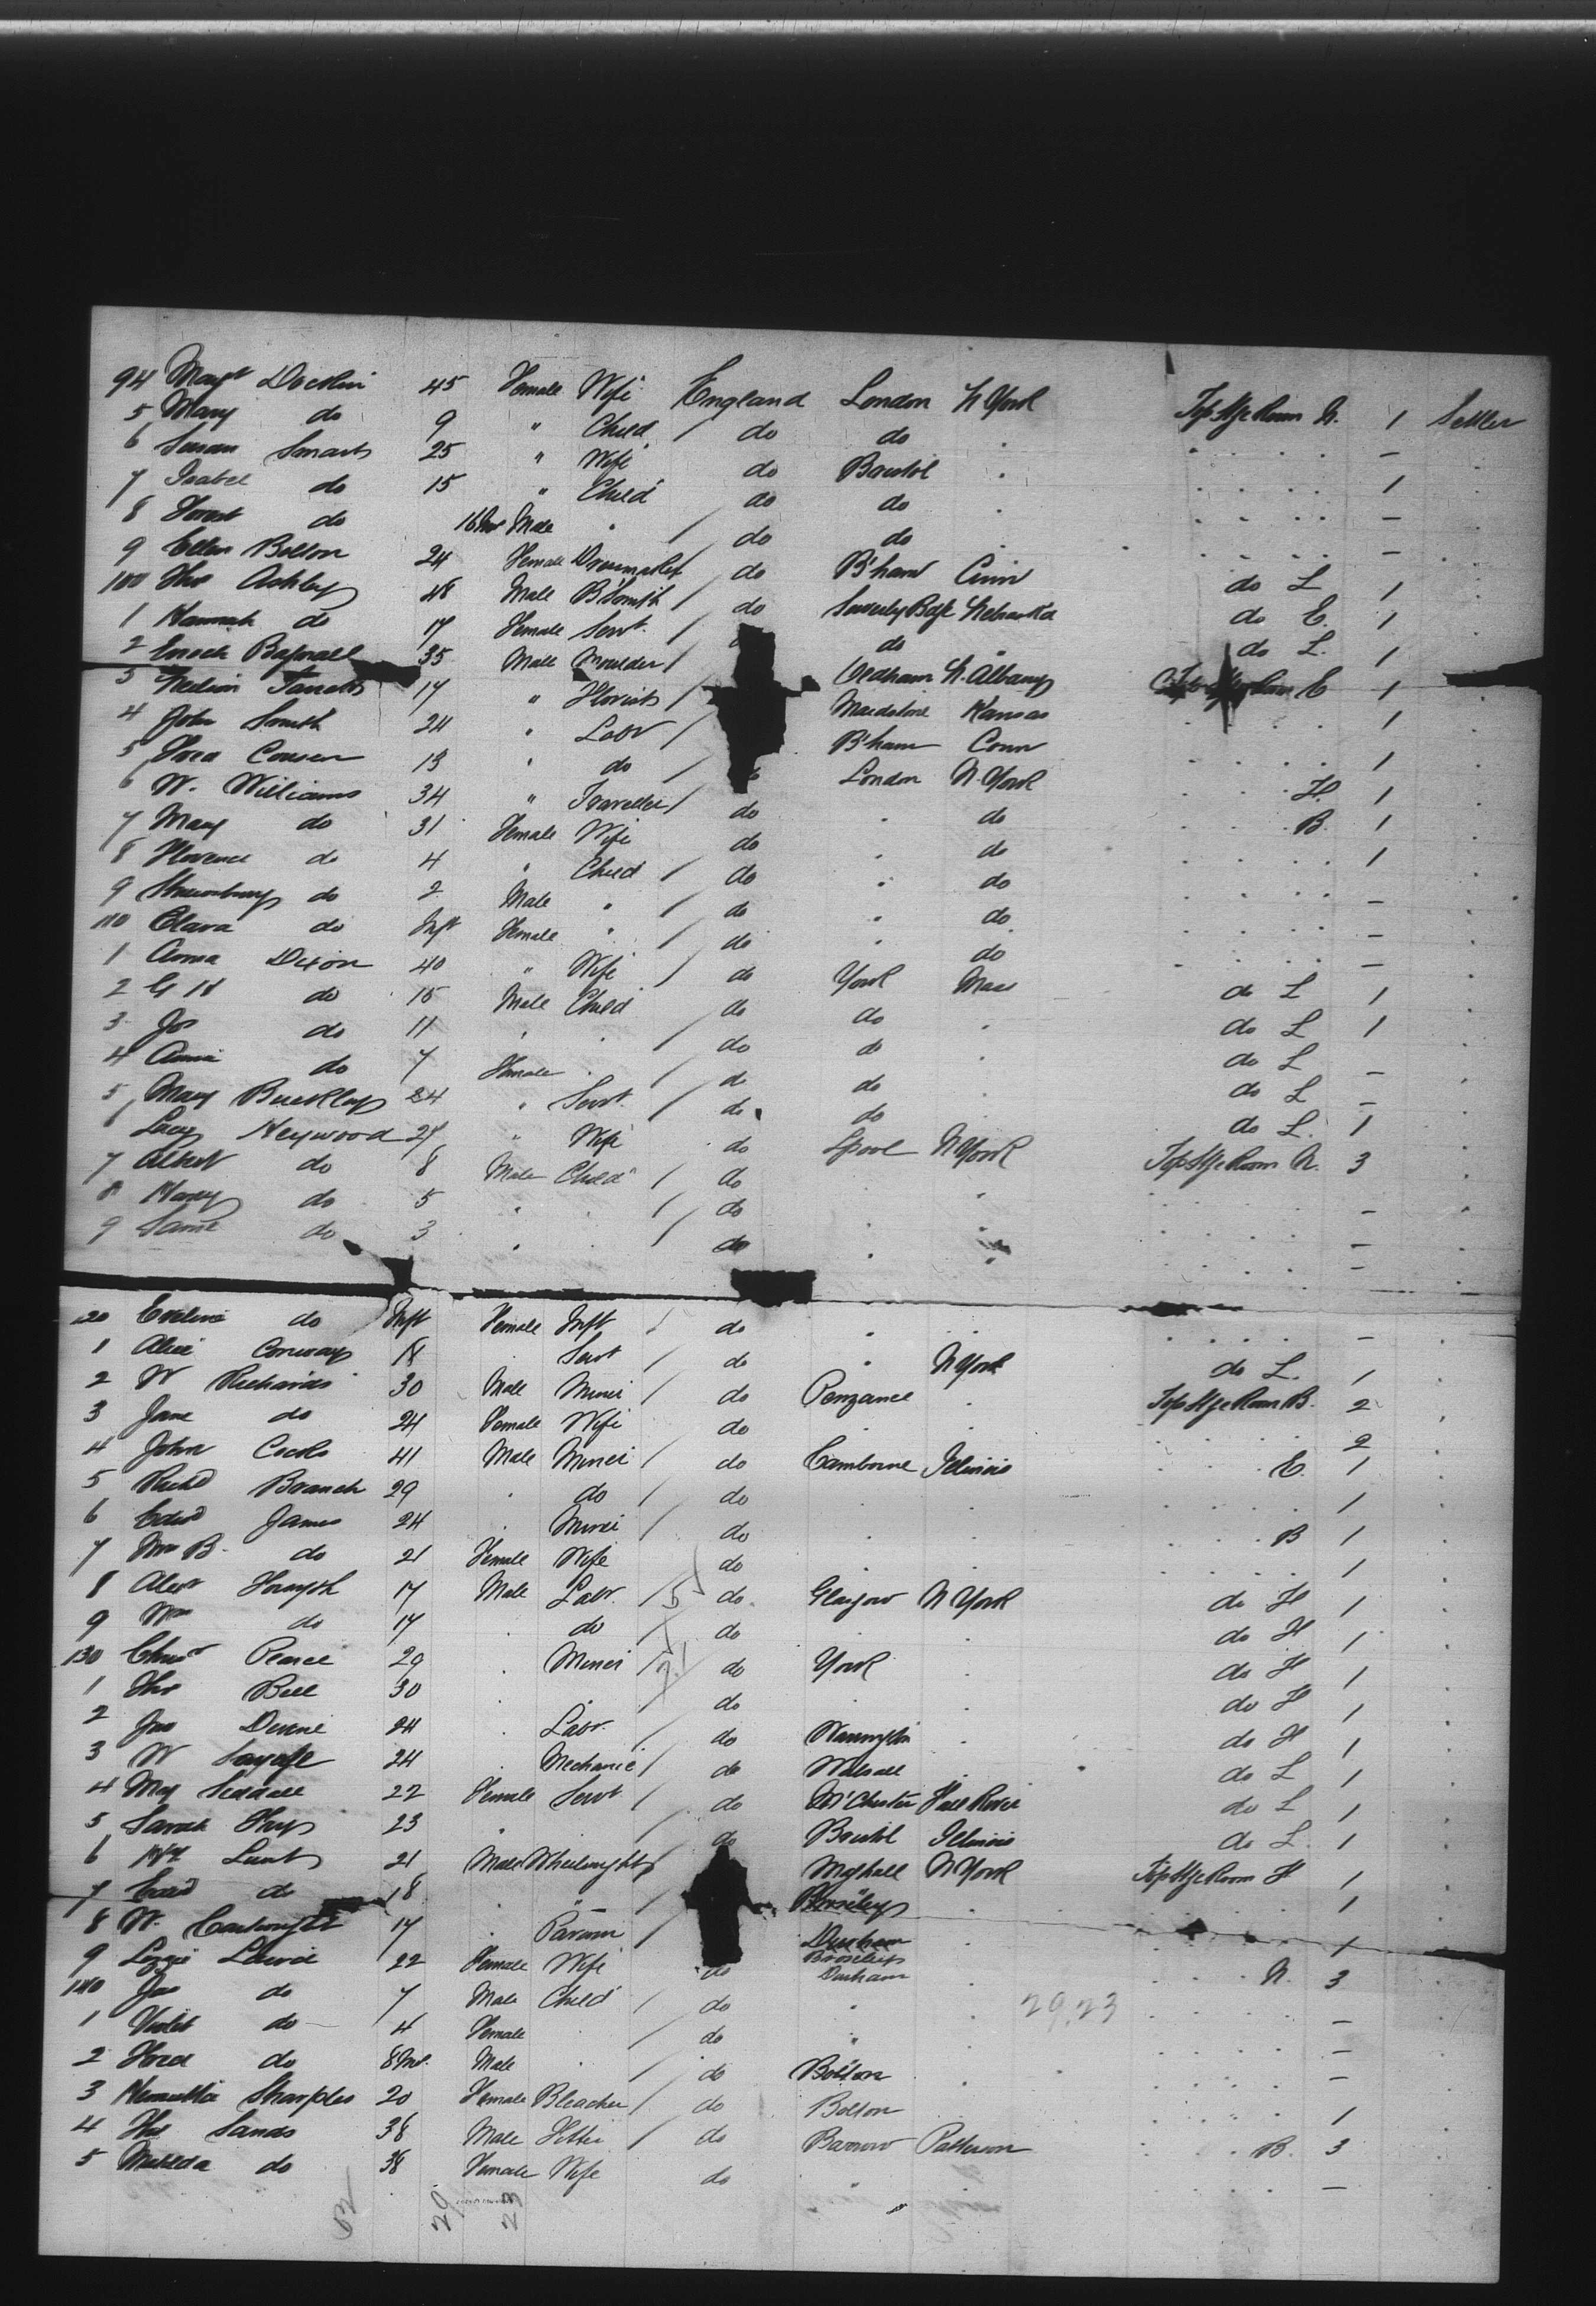 94 Margt 45 Female Wife England London N York Top Stge Room N. 1 Settler
5 Mary do 9 " Child / do do . . . . . —
6 Susan Smart 25 " Wife do Bristol . . . . . 1
7 Isabel do 15 " Child do do . . . . . —
8 do 16 Mos Male " / do do . . . . . —
9 Ellen Bolton 24 Female Dressmaker / do B'ham do L 1
100 Thos Ashley 48 Male B Smith / do Nebraska do E. 1
1 Hannah do 17 Female Servt. / do " do L. 1
2 Enoch Bagnall 35 Male Moulder / Oldham N. Albany Room E 1
3 17 " Florist / Maidstone Kansas . . . . 1
4 John Smith 24 " Labr / B'ham Conn . . . . 1
5 13 " do / London N. York . . . H. 1
6 W. Williams 34 " Traveller / do . do . . . B. 1
7 Mary do 31 Female Wife do . do . . . . 1
8 Florence do 4 " Child / do . do . . . . —
9 do 2 Male " / do . do . . . . —
110 Clara do Inft Female " / do . do . . . . —
1 Anna Dixon 40 " Wife / do York Mass do L 1
2 G H do 15 Male Child do do . do L 1
3 Jos do 11 . . / do do . do L —
4 Annie do 7 Female . / do do . do L —
5 Mary Buckley 24 " Servt. / do do . do L. 1
6 Lucy Heywood 27 " Wife do Lpool N York Top Stge Room N. 3
7 Albert do 8 Male Child / do . . . . . . —
8 Harry do 5 " . / do . . . . . . —
9 do 3 " . / do . " . . . . —
120 Eveline do Inft Female Inft / do . . . . . . —
1 Alice Conway 18 . Servt / do " N York do L. 1
2 W Richards 30 Male Miner / do Penzance . Top Stge Room B. 2
3 Jane do 24 Female Wife do . . . . . . 2
4 John Cocks 41 Male Miner / do Camborne Illinois . . . E. 1
5 Richd Branch 29 . do / do . . . . . . 1
6 Edwd James 24 . Miner / do . . . . . B 1
7 Mrs B. do 21 Female Wife do . . . . . . 1
8 Alexr Forsyth 17 Male Labr. / 5 do. Glasgow N York do H 1
9 Wm do 17 . do / do . . do H 1
130 Pearce 29 . Miner / do York . do H 1
1 Thos Bell 30 . . / do . . do H 1
2 Jas Devine 24 . Labr. / do Warrington . do H 1
3 W Savage 24 . Mechanic / do Walsall . do L 1
4 Mary Seddall 22 Female Servt / do M'Chester Fall River do L 1
5 Sarah 23 " . / do Bristol Illinois do L. 1
6 Lunt 21 Male Wheelwright / Maghull N York Top Stge Room H 1
7 Edwd do 18 . " / . . . . . 1
8 W. Cartwright 17 . / Durham . . . . . 1
9 Lizzie 22 Female Wife do Durham . . . . N. 3
140 Jas do 7 Male Child / do " . 29.23 . . . . —
1 Violet do 4 Female . / do " . . . . . —
2 Fred do 8 Ms. Male . / do Bolton . . . . . —
3 Sharples 20 Female Bleacher / do Bolton . . . . . 1
4 Thos Sands 38 Male Fitter / do Barrow Patterson . . . B. 3
5 Matilda do 38 Female Wife do " . . . . . —
52 29 23